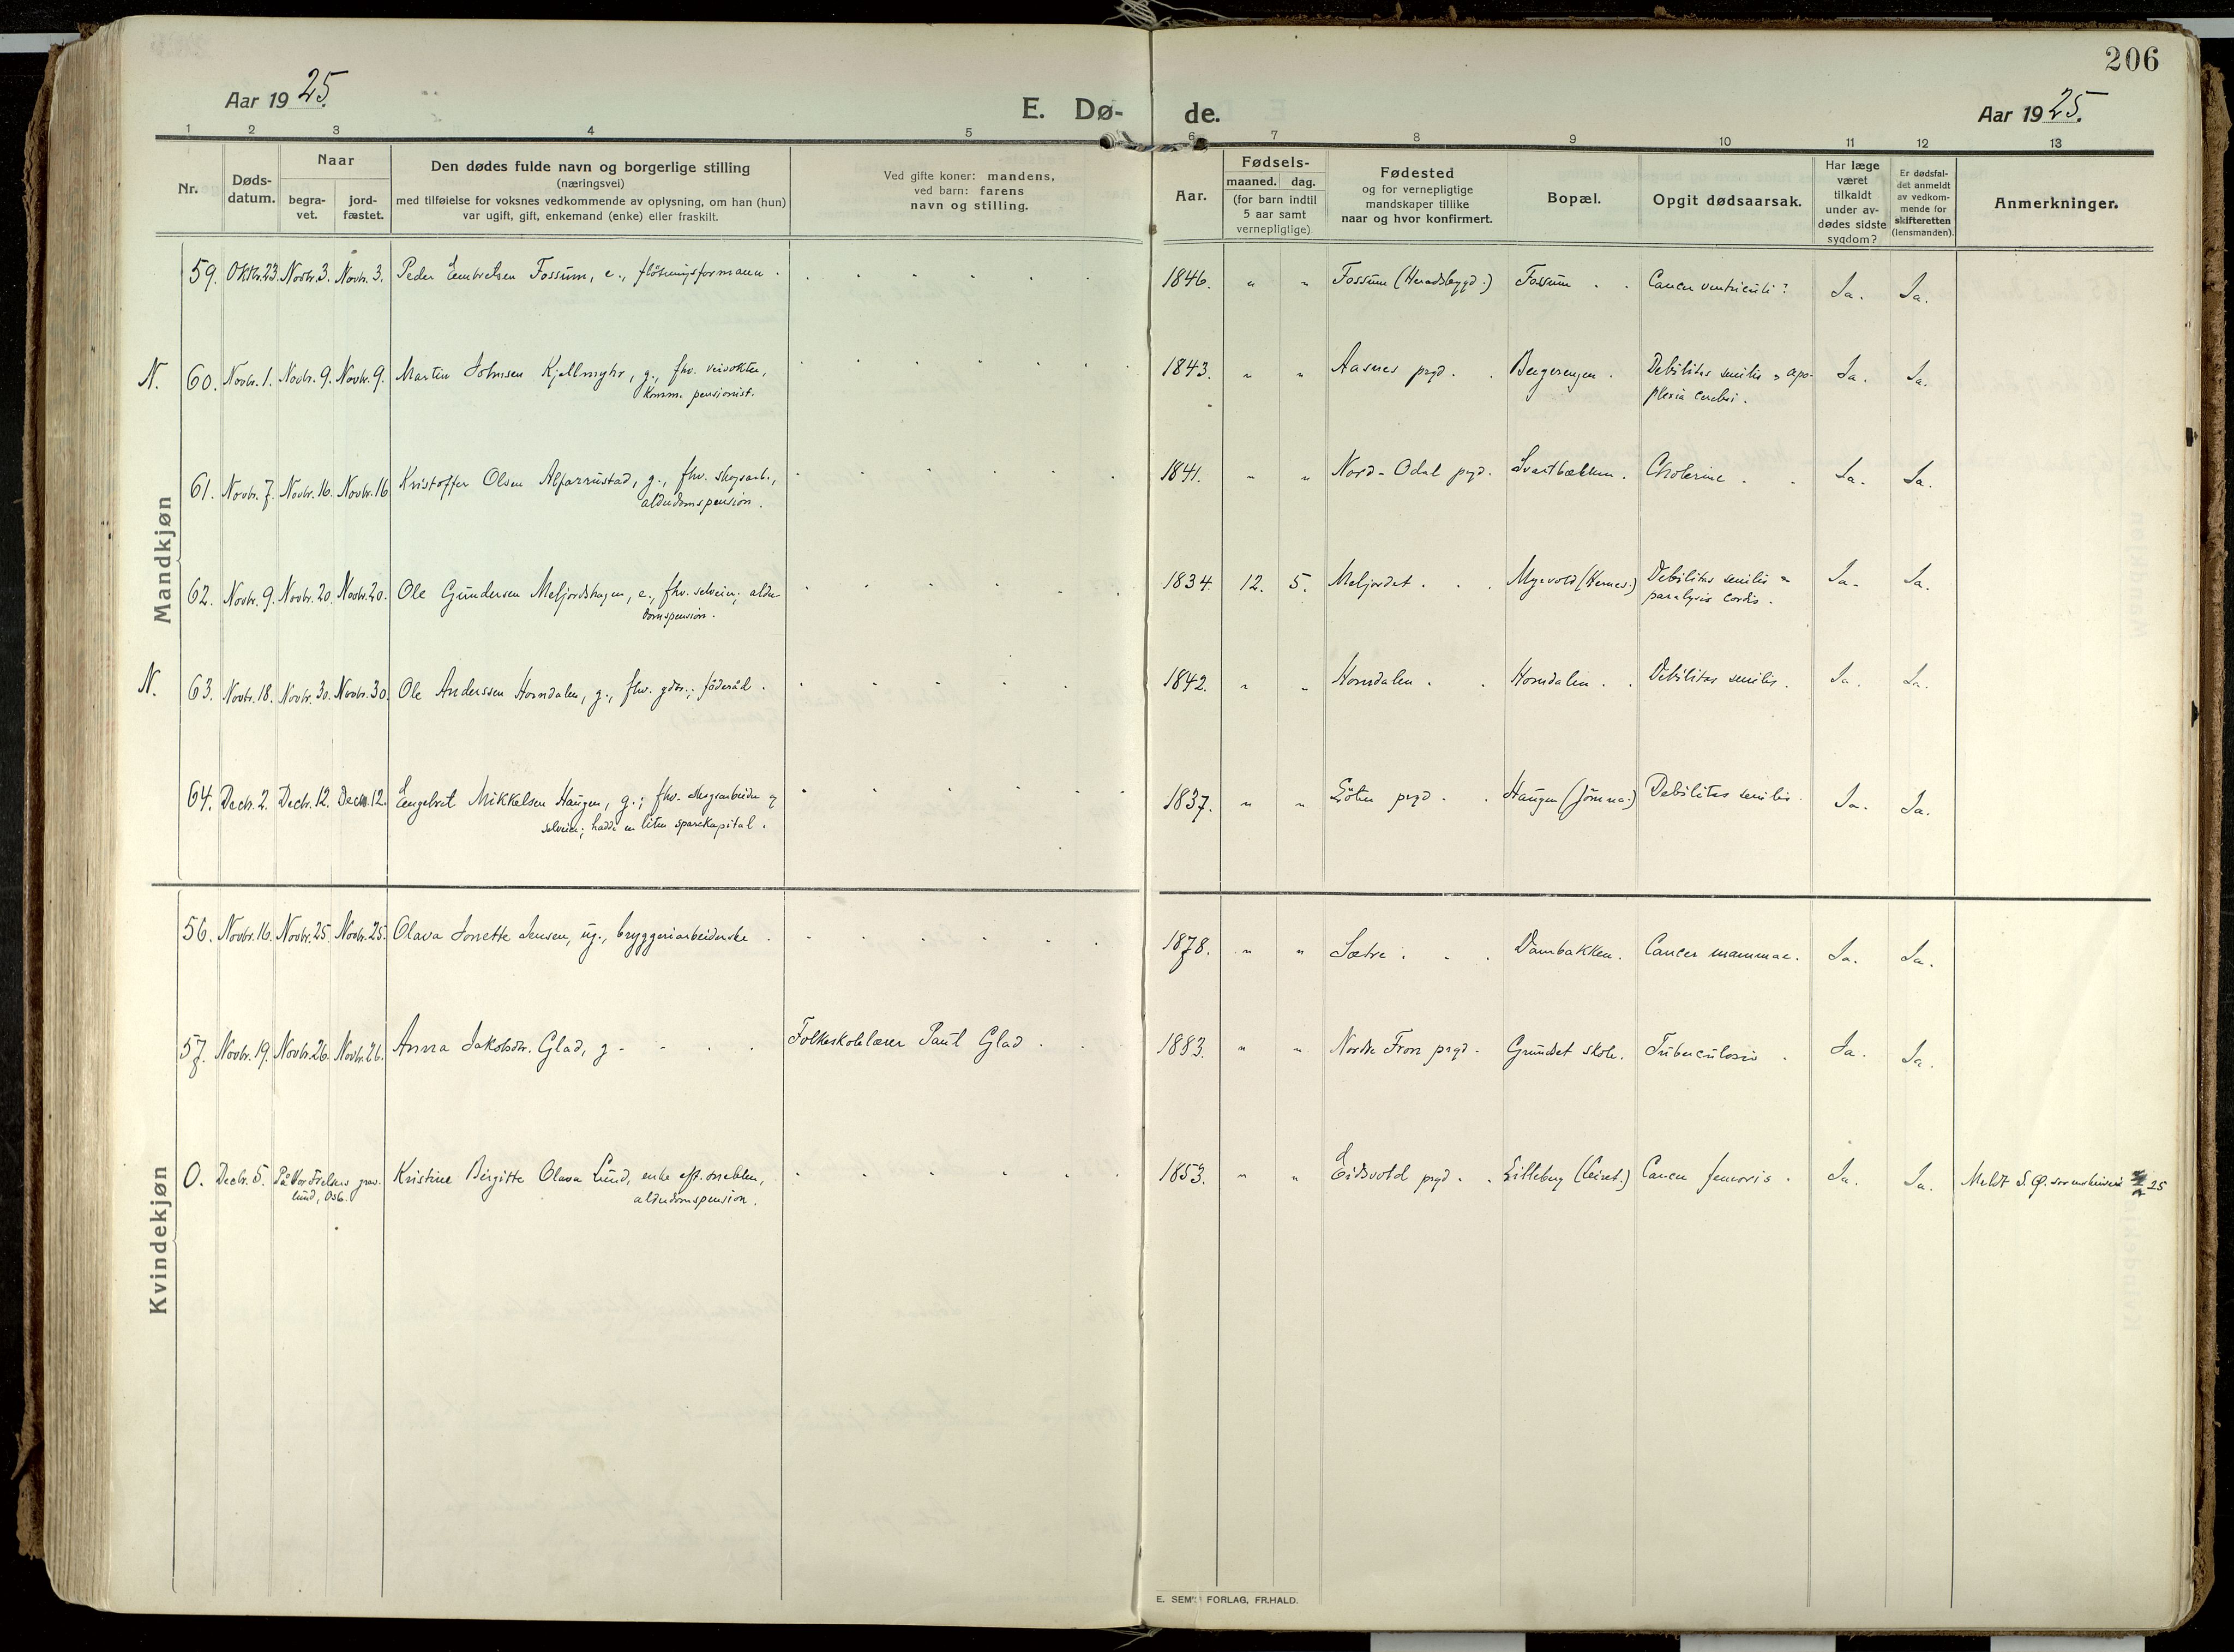 206
Aar 1925.
E. Dø-
de.
Aar 1925.
1 2 3 4 5 6 7 8 9 10 11 12 13
Nr.
Døds-
datum.
Naar
begra-
vet.
jord-
fæstet.
Den dødes fulde navn og borgerlige stilling
(næringsvei)
med tilføielse for voksnes vedkommende av oplysning, om han (hun)
var ugift, gift, enkemand (enke) eller fraskilt.
Ved gifte koner: mandens,
ved barn: farens
navn og stilling.
Aar.
Fødsels-
maaned. dag.
(for barn indtil
5 aar samt
vernepligtige).
Fødested
og for vernepligtige
mandskaper tillike
naar og hvor konfirmert.
Bopæl.
Opgit dødsaarsak.
Har læge
været
tilkaldt
under av-
dødes sidste
sygdom?
Er dødsfal-
det anmeldt
av vedkom-
mende for
skifteretten
(lensmanden).
Anmerkninger.
Mandkjøn
59. Oktbr. 23. Novbr. 3. Novbr. 3. Peder Embretsen Fossum, e., fløtningsformann. 1846. " " Fossum (Heradsbygd.) Fossum. Cancer ventriculi? Ja. Ja.
N. 60. Novbr. 1. Novbr. 9. Novbr. 9. Martin Johnsen Kjellmyhr, g., fhv. veivokter, 1843. " " Aasnes prgd. Bergerengen. Debilitas senilis & apo-
komm. pensionist. plexia cerebri. Ja. Ja.
61. Novbr. 7. Novbr. 16. Novbr. 16 Kristoffer Olsen Alfarrustad, g., fhv. skogsarb., 1841. " " Nord-Odal prgd. Svartbækken. Cholerine. Ja. Ja.
alderdomspension.
62. Novbr. 9. Novbr. 20. Novbr. 20. Ole Gundersen Meljordshagen, e., fhv. selveier; alder- 1834. 12. 5. Meljordet. Myrvold (Kernes.) Debilitas senilis &
domspension. paralysis cordis. Ja. Ja.
N. 63. Novbr. 18. Novbr. 30. Novbr. 30. Ole Anderssen Horndalen, g., fhv. gdbr.; föderåd. 1842. " " Horndalen. Horndalen. Debilitas senilis. Ja. Ja.
64. Decbr. 2. Decbr. 12. Decbr. 12. Engebret Mikkelsen Haugen, g.; fhv. skogsarbeider og 1837. " " Löten prgd. Haugen (Jömna.) Debilitas senilis. Ja. Ja.
selveier; hadde en liten sparekapital.
Kvindekjøn
56. Novbr. 16. Novbr. 25. Novbr. 25. Olava Jonette Jensen, ug., bryggeriarbeiderske. 1878. " " Sætre. Dambakken. Cancer mammae. Ja. Ja.
57. Novbr. 19. Novbr. 26. Novbr. 26. Anna Jakobsdr. Glad, g. Folkeskolelærer Paul Glad. 1883. " " Nordre Fron prgd. Grundset skole. Tuberculosis. Ja. Ja.
0. Decbr. 5. På Vor Frelsers grav- Kristine Birgitte Olava Lund, enke eft. snekker, 1853. " " Eidsvold prgd. Lilleborg (Leiret.) Cancer femoris. Ja. Ja. Meldt S. P.
lund, Oslo. alderdomspension. 25
E. SEM'S FORLAG, FR.HALD.